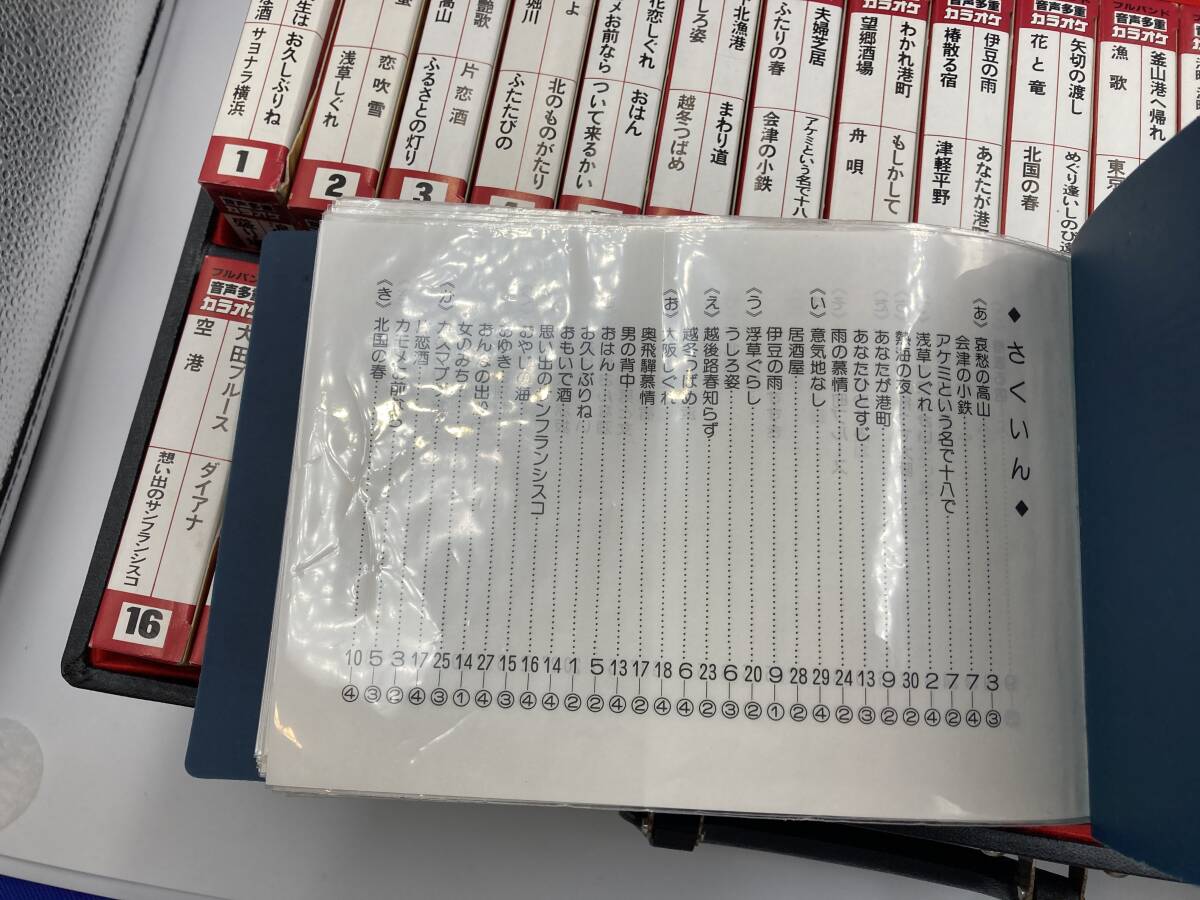 お久しぶりね
サヨナラ横浜
1
恋吹雪
浅草しぐれ
2
艶歌
高山
片恋酒
ふるさとの灯り
3
堀川
北のものがたり
ふたたびの
花恋しぐれ
メお前なら
おはん
ついて来るかい
北漁港
しろ姿
まわり道
越冬つばめ
夫婦芝居
ふたりの春
アケミという名で十八
会津の小鉄
わかれ港町
望郷酒場
もしかして
舟唄
音声多重
カラオケ
伊豆の雨
椿散る宿
あなたが港町
津軽平野
音声多重
カラオケ
矢切の渡し
花と竜
めぐり逢いしのび逢
北国の春
フルバンド
音声多重
カラオケ
釜山港へ帰れ
漁歌
東京
フルバンド
音声多重
カラオケ
大田ブルース
空港
ダイアナ
想い出のサンフランシスコ
16
◆さくいん◆
〈あ〉哀愁の高山 3―③
会津の小鉄 7―④
アケミという名で十八で 7―②
浅草しぐれ 2―④
熱海の夜 30―②
あなたが港町 9―②
あなたひとすじ 13―③
雨の慕情 24―②
〈い〉意気地なし 29―④
居酒屋 28―②
伊豆の雨 9―①
〈う〉浮草ぐらし 20―②
うしろ姿 6―③
〈え〉越後路春知らず 23―②
越冬つばめ 6―④
〈お〉大阪しぐれ 18―④
奥飛騨慕情 17―②
男の背中 13―④
おはん 5―②
お久しぶりね 1―②
おもいで酒 14―④
思い出のサンフランシスコ 16―④
おやじの海 15―③
おゆき 27―④
おんなの出船 14―①
女のみち 25―③
〈か〉カスマプゲ 17―④
片恋酒 3―②
カモメお前なら 5―③
〈き〉北国の春 10―④